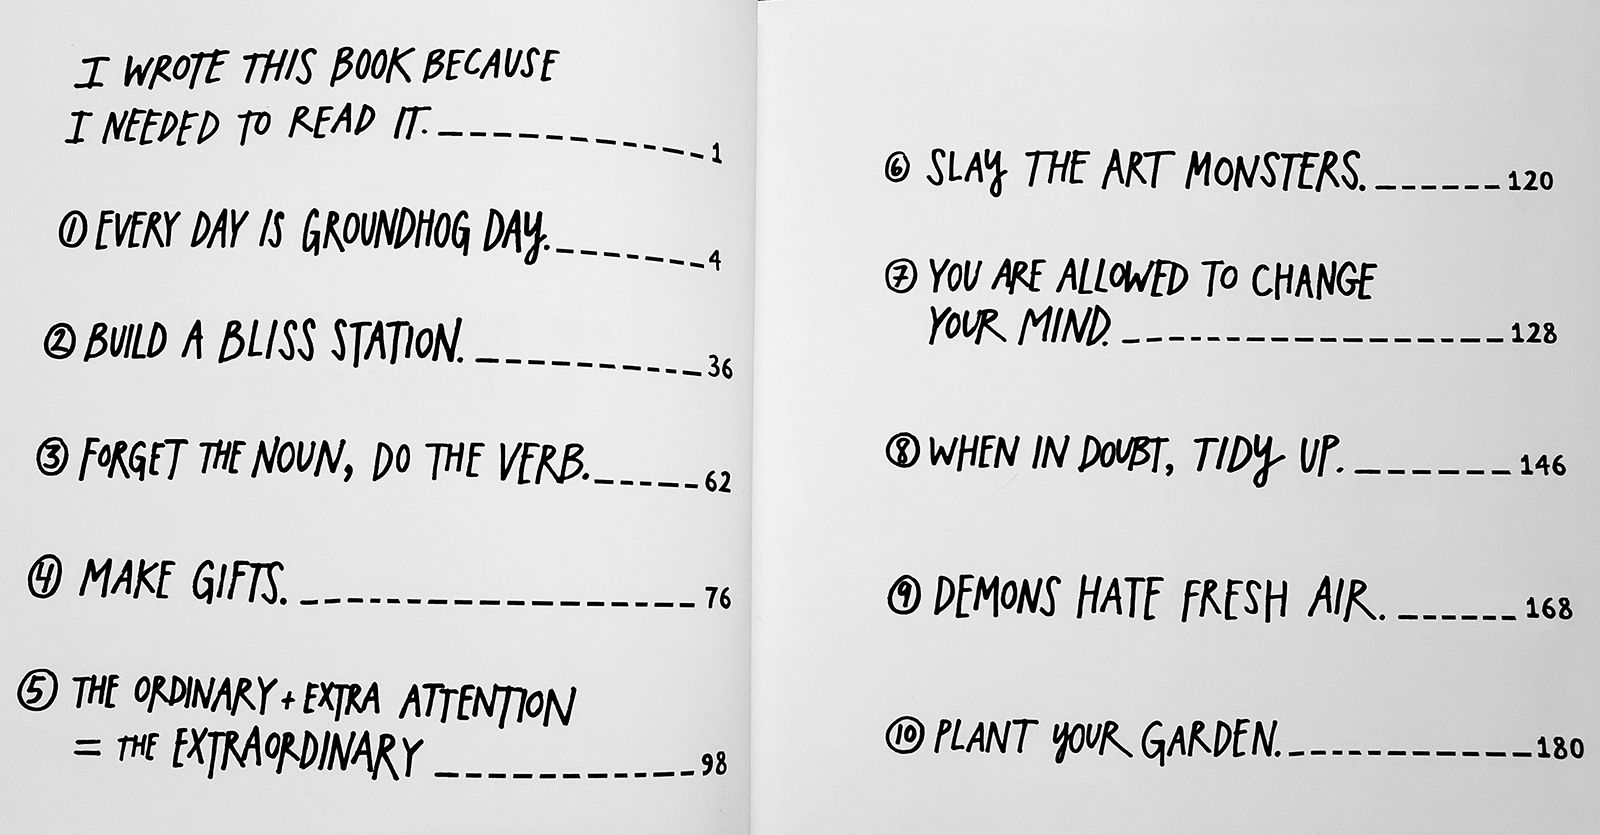 I WROTE THIS BOOK BECAUSE
I NEEDED TO READ IT. 1
① EVERY DAY IS GROUNDHOG DAY. 4
② BUILD A BLISS STATION. 36
③ FORGET THE NOUN, DO THE VERB. 62
④ MAKE GIFTS. 76
⑤ THE ORDINARY + EXTRA ATTENTION
= THE EXTRAORDINARY 98
⑥ SLAY THE ART MONSTERS. 120
⑦ YOU ARE ALLOWED TO CHANGE
YOUR MIND. 128
⑧ WHEN IN DOUBT, TIDY UP. 146
⑨ DEMONS HATE FRESH AIR. 168
⑩ PLANT YOUR GARDEN. 180